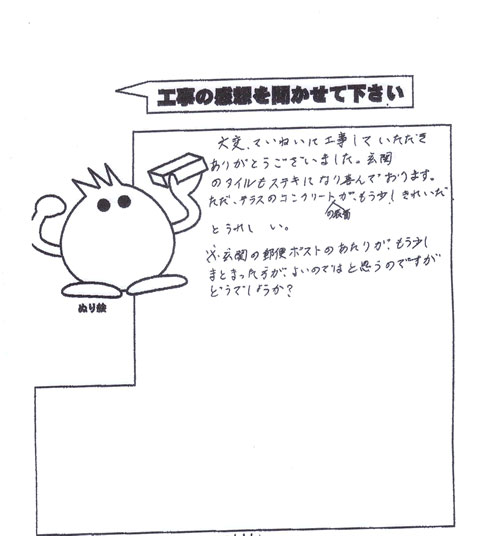 工事の感想を聞かせて下さい
大変、ていねいに工事していただき
ありがとうございました。玄関
のタイルもステキになり喜んでおります。
ただ、テラスのコンクリートが、もう少しきれいだ
の表面
とうれしい。
※玄関の郵便ポストのあたりが、もう少し
まとまった方が、よいのではと思うのですが
どうでしょうか?
ぬり絵